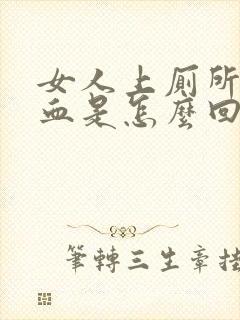 女人上厕所
血是怎麼回
筆轉三生章挂